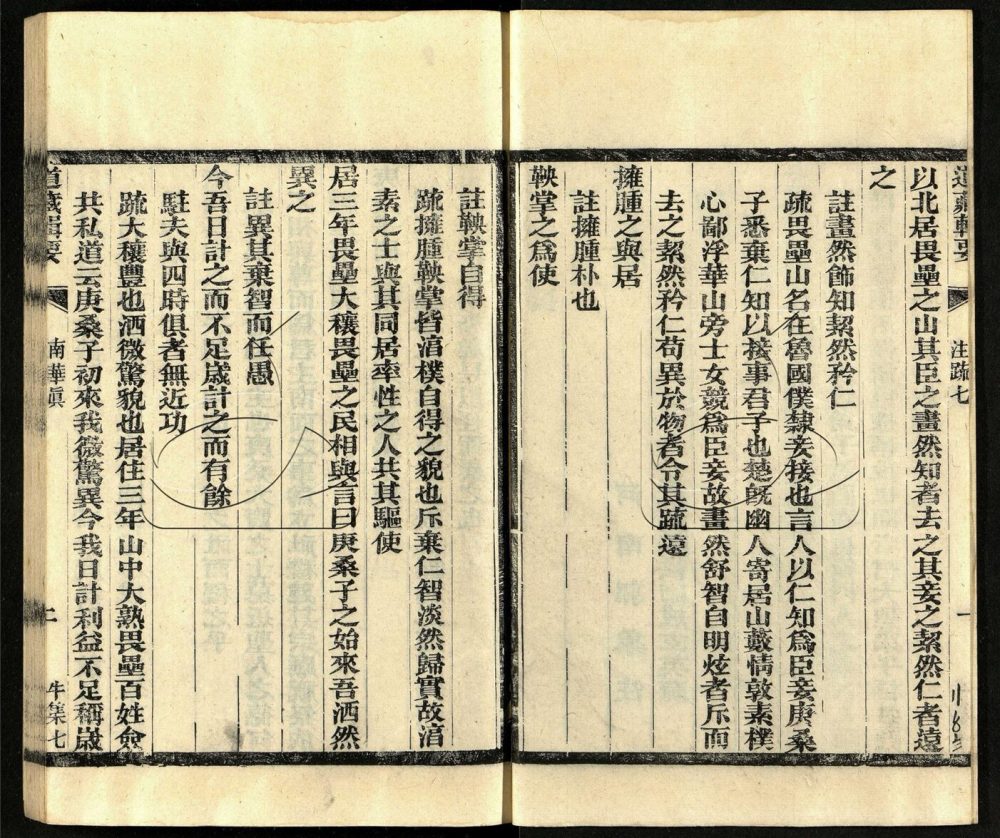 以北居畏壘之山其臣之畫然知者去之其妾之絜然仁者遠
之
註畫然飾知絜然矜仁
疏畏壘山名在魯國僕隸妾接也言人以仁知為臣妾庚桑
子悉棄仁知以接事君子也楚既幽人寄居山藪情敦素樸
心鄙浮華山旁士女競為臣妾故畫然舒智自明炫者斥而
去之絜然矜仁苟異於物者令其疏遠
擁腫之與居
註擁腫朴也
鞅掌之為使
註鞅掌自得
疏擁腫鞅掌皆淳樸自得之貌也斥棄仁智淡然歸實故淳
素之士與其同居率性之人共其驅使
居三年畏壘大穰畏壘之民相與言曰庚桑子之始來吾洒然
異之
註異其棄智而任愚
今吾日計之而不足歲計之而有餘
註夫與四時俱者無近功
疏大穰豐也洒微驚貌也居住三年山中大熟畏壘百姓僉
共私道云庚桑子初來我微驚異今我日計利益不足稱歲
道藏輯要
南華真
二
牛集七
注疏七